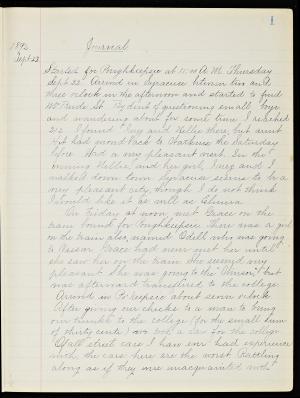 1
1892
Sept. 23.
Journal
Started for Poughkeepsie at 11:00 A.M. Thursday
Sept 22. Arrived in Syracuse between two and
three o'clock in the afternoon and started to find
St. By dint of questioning small boys
and wandering about for some time I reached
212. I found and Nellie there but aunt
had moved back to the Saturday
before. Had a very pleasant visit. In the
evening Nellie and her and I
walked down town. Syracuse seems to be a
very pleasant city, though I do not think
I would like it as well as Elmira.
On Friday at noon, met Grace on the
train bound for Poughkeepsie. There was a girl
on the train also, named Odell who was going
to Vassar. Grace had never met her until
she saw her on the train. She seemed very
pleasant. She was going to the but
was afterward transferred to the college.
Arrived in Po'keepsie about seven o'clock.
After giving our checks to a man to bring
our trunks to the college (for the small sum
of thirty cents) we took a car for the college.
Of all street cars I have ever had experience
with the cars here are the worst. Rattling
along as if they were unacquainted with